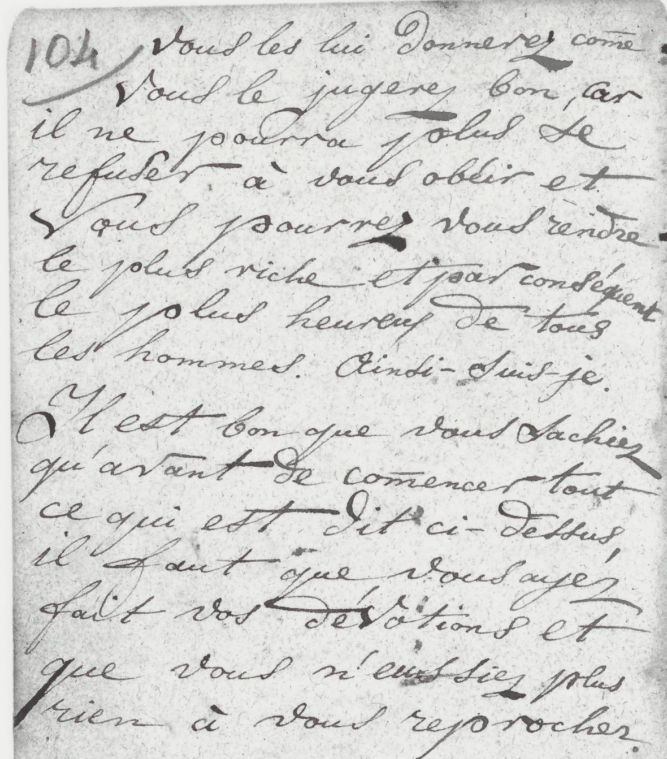 104 Vous les lui donnerez com̄e
Vous le jugerez bon, car
il ne pourra plus se
refuser à vous obéir et
Vous pourrez vous rendre
le plus riche et par conséquent
le plus heureux de tous
les hommes. Ainsi-suis-je.
Il est bon que vous sachiez
qu'avant de com̄encer tout
ce qui est dit ci-dessus,
il faut que vous ayéz
fait vos dévotions et
que vous n'eussiez plus
rien à vous reprocher.